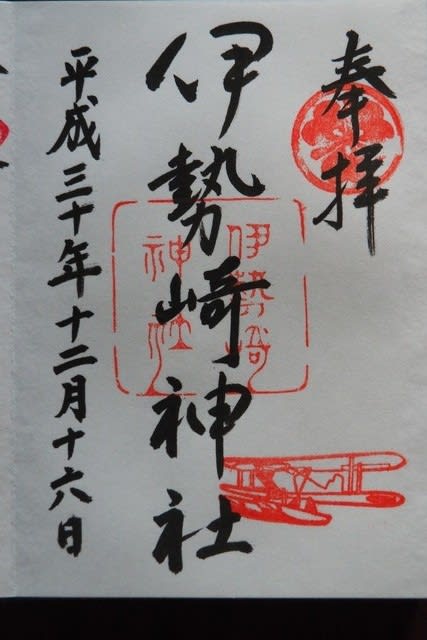 奉拝
伊勢崎神社
伊勢崎
神社
平成三十年十二月十六日